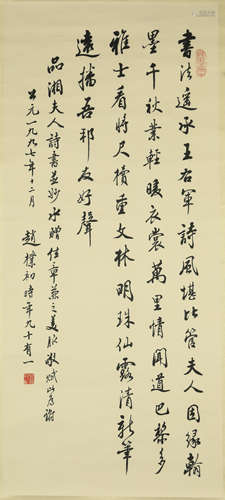 書法遥承王右軍詩風堪比管夫人因緣翰
墨千秋業輕暖衣裳萬里情聞道巴黎多
雅士看將尺牘重文林明珠仙露清新筆
遠播吾邦友好聲
品湘夫人詩書並妙承贈佳章兼之美服敬賦此爲謝
公元一九九七年十二月
趙樸初時年九十有一